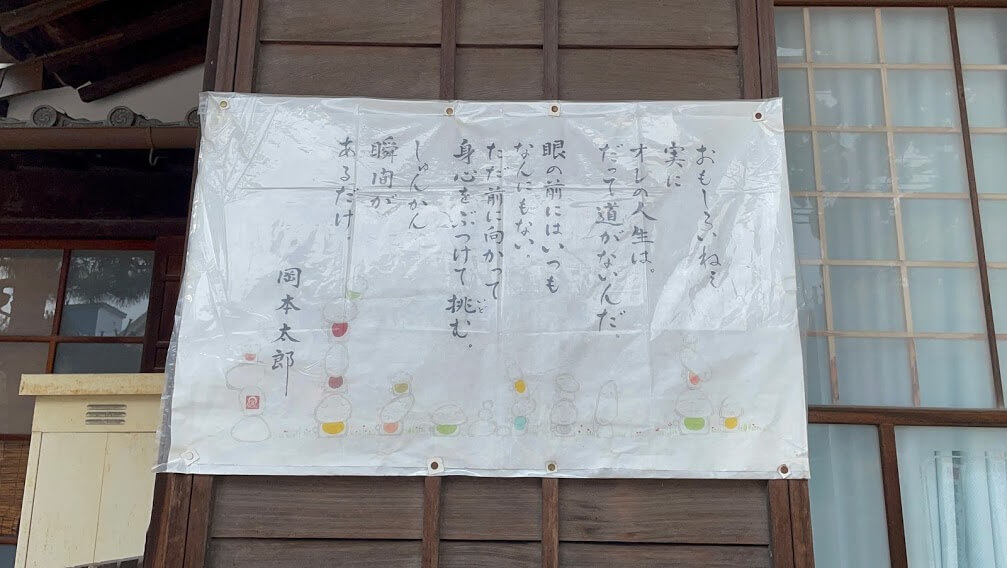 おもしろいねミ
実に
オレの人生は。
だって道がないんだ、
眼の前にはいつも
なんにもない、
ただ前に向かって
身心をぶつけて挑む。
しゅんかん
瞬間が
あるだけ。
岡本太郎